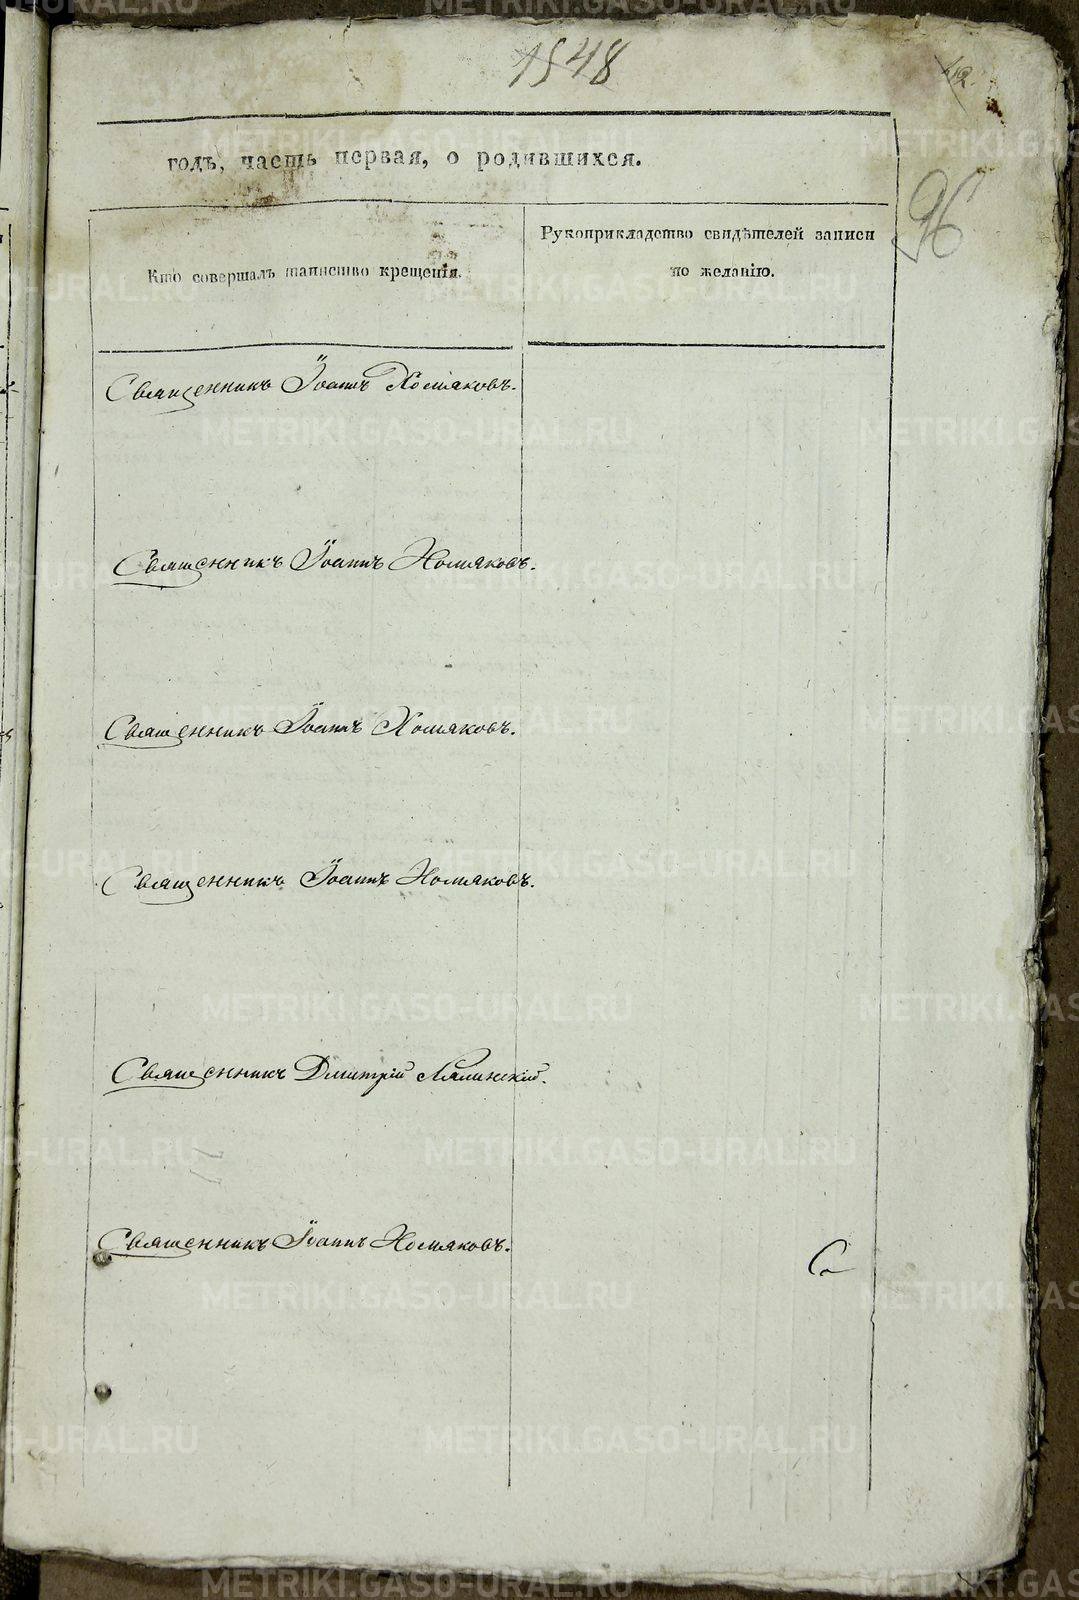 1848
412.
годъ, часть первая, о родившихся.
96
Кто совершалъ таинство крещенія.
Рукоприкладство свидѣтелей записи
по желанію.
Священникъ Іоаннъ Хомяковъ.
Священникъ Іоаннъ Хомяковъ.
Священникъ Іоаннъ Хомяковъ.
Священникъ Іоаннъ Хомяковъ.
Священникъ Дмитрій Лялинскій.
Священникъ Іоаннъ Хомяковъ.
METRIKI.GASO-URAL.RU